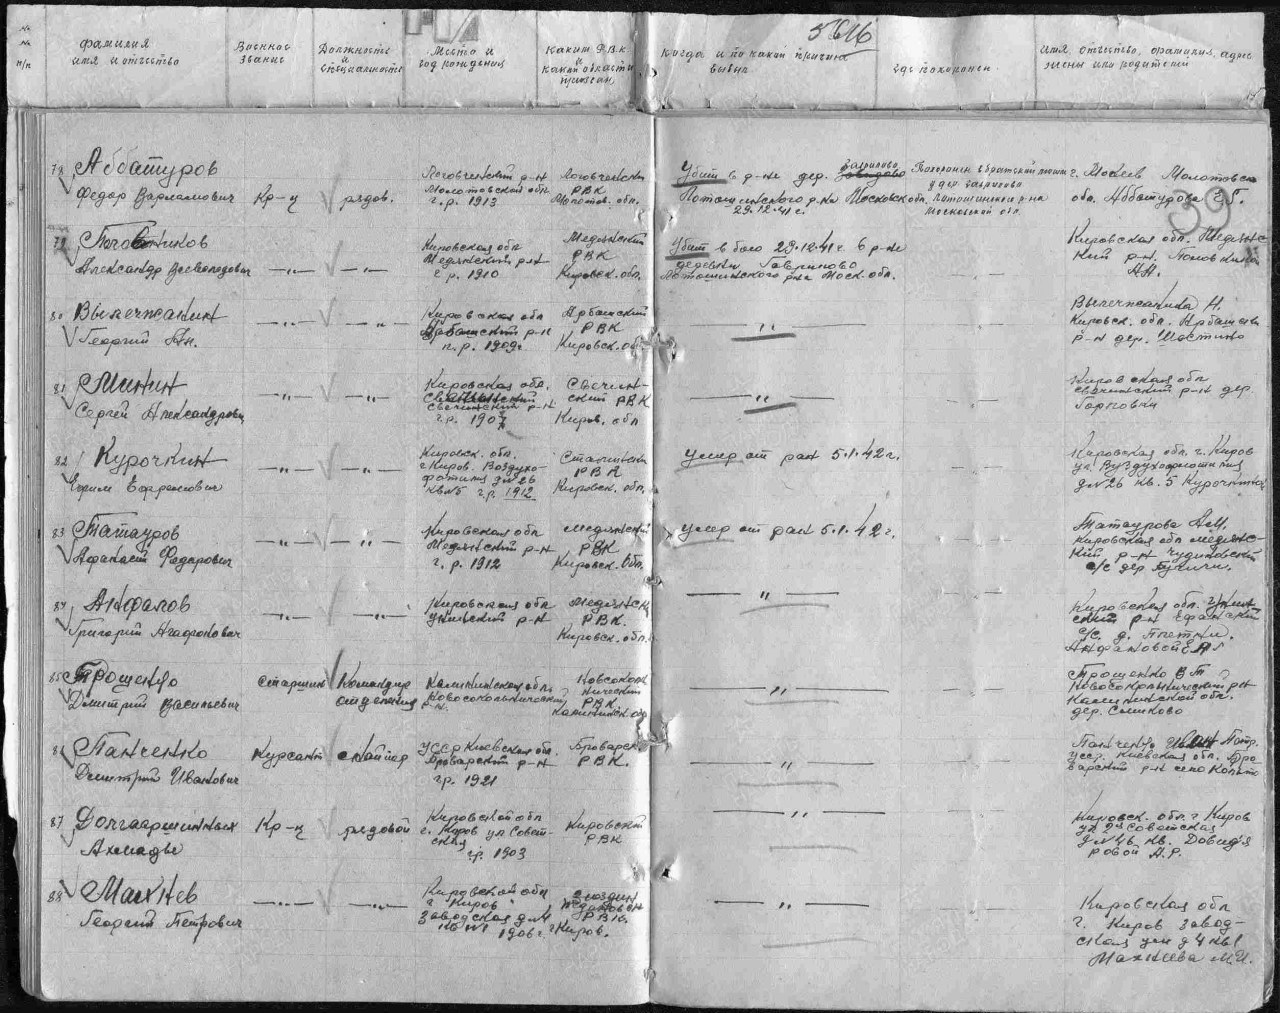 5616
№ № п/п
фамилия имя и отчество
Военное звание
Должность и специальность
Место и год рождения
Каким РВК и какой области призван
Когда и по какой причине выбыл
Где похоронен
Имя, отчество, фамилия, адрес жены или родителей
39
Аббатуров
Федор Варламович
Кр-ц
рядов.
Молотовской обл.
г.р. 1913
РВК
Молотов. обл.
Убит в р-не дер. Гаврилово
Лотошинского р-на Московск обл.
29.12.41 г.
Похоронен в братской могиле
у дер. Гаврилово
Лотошинского р-на
Московской обл.
Молотовск
обл. Аббатурова
79
Александр Всеволодович
—„—
—„—
Кировская обл
Медянский р-н
г.р. 1910
Медянский
РВК
Кировск. обл.
Убит в бою 29.12.41 г. в р-не
деревни Гаврилово
Лотошинского р-на Моск. обл.
— „ —
Кировская обл. Медянс
кий р-н.
80
Вылегжанин
Георгий Ан.
—„—
—„—
Кировская обл
Арбажский р-н
г.р. 1909г.
Арбажский
РВК
Кировск. обл
— „ —
— „ —
Вылегжанина Н.
Кировск. обл. Арбажск
р-н дер.
81
Минин
Сергей Александрович
—„—
—„—
Кировская обл.
свечинский р-н
г.р. 1907
Свечин-
ский РВК
Киров. обл
— „ —
— „ —
Кировская обл
свечинский р-н дер.
82
Курочкин
Ефим Ефремович
—„—
—„—
Кировск. обл.
г. Киров. Воздухо-
флотил д №26
кв №5 г.р. 1912
Сталинский
РВК
Кировск. обл.
умер от ран 5.1.42 г.
— „ —
Кировская обл. г. Киров
д №26 кв. 5
83
Татауров
Афанасий Федорович
—„—
—„—
Кировская обл
Медянский р-н
г.р. 1912
Медянский
РВК
Кировск. обл.
умер от ран 5.1.42 г.
— „ —
Татаурова
Кировская обл медянс-
кий р-н Чудиновский
с/с дер
84
Анфалов
Григорий Агафонович
—„—
—„—
Кировская обл
унинский р-н
Медянск
РВК.
Кировск. обл.
— „ —
— „ —
Кировская обл. Унин-
ский р-н
с/с. д.
85
Трощенко
Дмитрий Васильевич
Старшин
Командир
отделения
Калининская обл.
Новосокольнический
р-н.
Новосоколь
нический
РВК
Калининск обл
— „ —
— „ —
Трощенко В Т
Новосокольнический р-н
Калининской обл.
дер.
86
Панченко
Дмитрий Иванович
Курсант
снайпер
УССР Киевская обл.
Броварский р-н
г.р. 1921
Броварск
РВК.
— „ —
— „ —
Панченко Иван Петр.
усср. Киевская обл. Бро-
варский р-н село
87
Долгааршинных
Кр-ц
рядовой
Кировской обл
г. Киров ул Совет-
ская
г.р. 1903
Кировский
РВК
— „ —
— „ —
Кировск. обл. г Киров
советская
88
Махнев
Георгий Петрович
—„—
—„—
Кировской обл
г Киров
Заводская д №4
кв №1 1906 г
РВК.
г Киров.
— „ —
— „ —
Кировская обл
г. Киров завод-
ская ул д 4 кв 1
Махнева М.И.